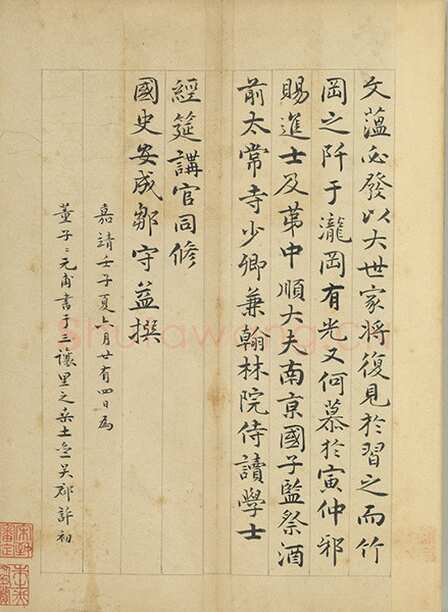 文薀必發以大世家將復見於習之而竹
岡之阡于瀧岡有光又何慕於寅仲邪
賜進士及苐中順大夫南京國子監祭酒
前太常寺少卿兼翰林院侍讀學士
經筵講官同修
國史安成鄒守益撰
嘉靖壬子夏六月廿有四日爲
董子〻元甫書于三讓里之桒土 吴郡許初